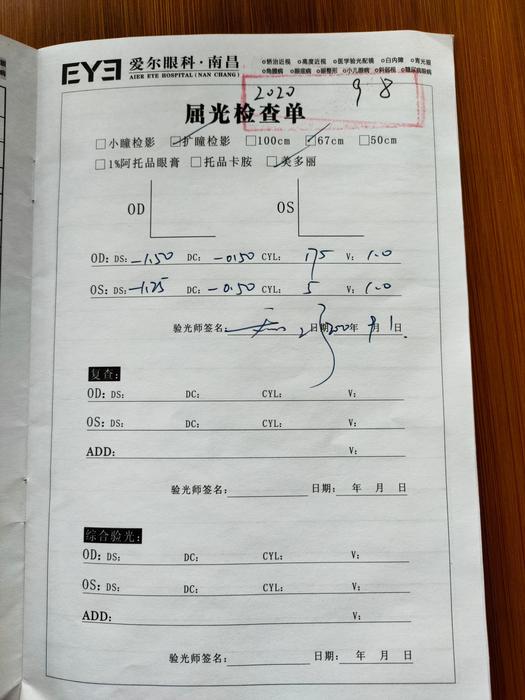 EYE 爱尔眼科·南昌
AIER EYE HOSPITAL (NAN CHANG)
○矫治近视 ○高度近视 ○医学验光配镜 ○白内障 ○青光眼
○角膜病 ○眼底病 ○眼整形 ○小儿眼病 ○斜弱视 ○糖尿病眼病
2020 9 8
屈光检查单
□小瞳检影 ☑扩瞳检影 □100cm ☑67cm □50cm
□1%阿托品眼膏 □托品卡胺 ☑美多丽
OD OS
OD: DS: -1.50 DC: -0.50 CYL: 175 V: 1.0
OS: DS: -1.25 DC: -0.50 CYL: 5 V: 1.0
验光师签名: 日期: 年 9月 1日
复查:
OD: DS: DC: CYL: V:
OS: DS: DC: CYL: V:
ADD: V:
验光师签名: 日期: 年 月 日
综合验光:
OD: DS: DC: CYL: V:
OS: DS: DC: CYL: V:
ADD: V:
验光师签名: 日期: 年 月 日